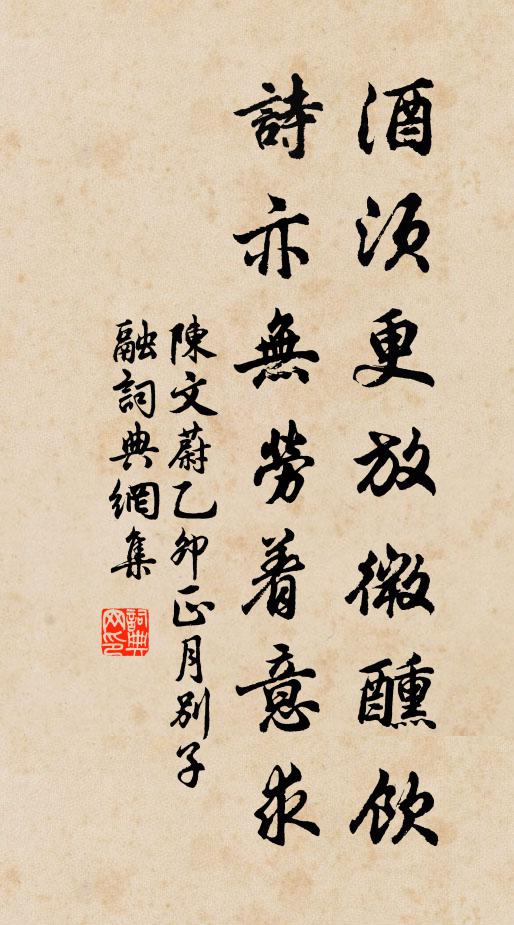 酒須更放微醺飲
詩亦無勞着意求
陳文蔚乙卯正月別子
融詞典網集
詞典网印